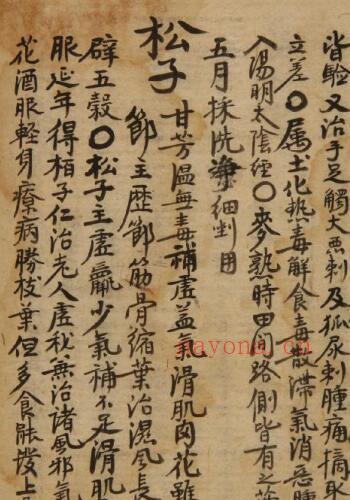 皆驗又治手足觸大惡刺及狐尿刺腫痛搞取
立差〇属土化热毒解食毒散滞氣消惡腫
入陽明太陰經〇麥熟時田间路側皆有之
五月採洗淨细剉用
松子 甘芳温無毒補虚益氣滑肌肉花雖
節主歷節筋骨縮葉治濕風長
辟五穀〇松子主虚羸少氣補不足滑肌
服延年得柏子仁治老人虚秘兼治诸風邪氣
花酒服軽身療病勝枝葉但多食能發上
nayona.cn